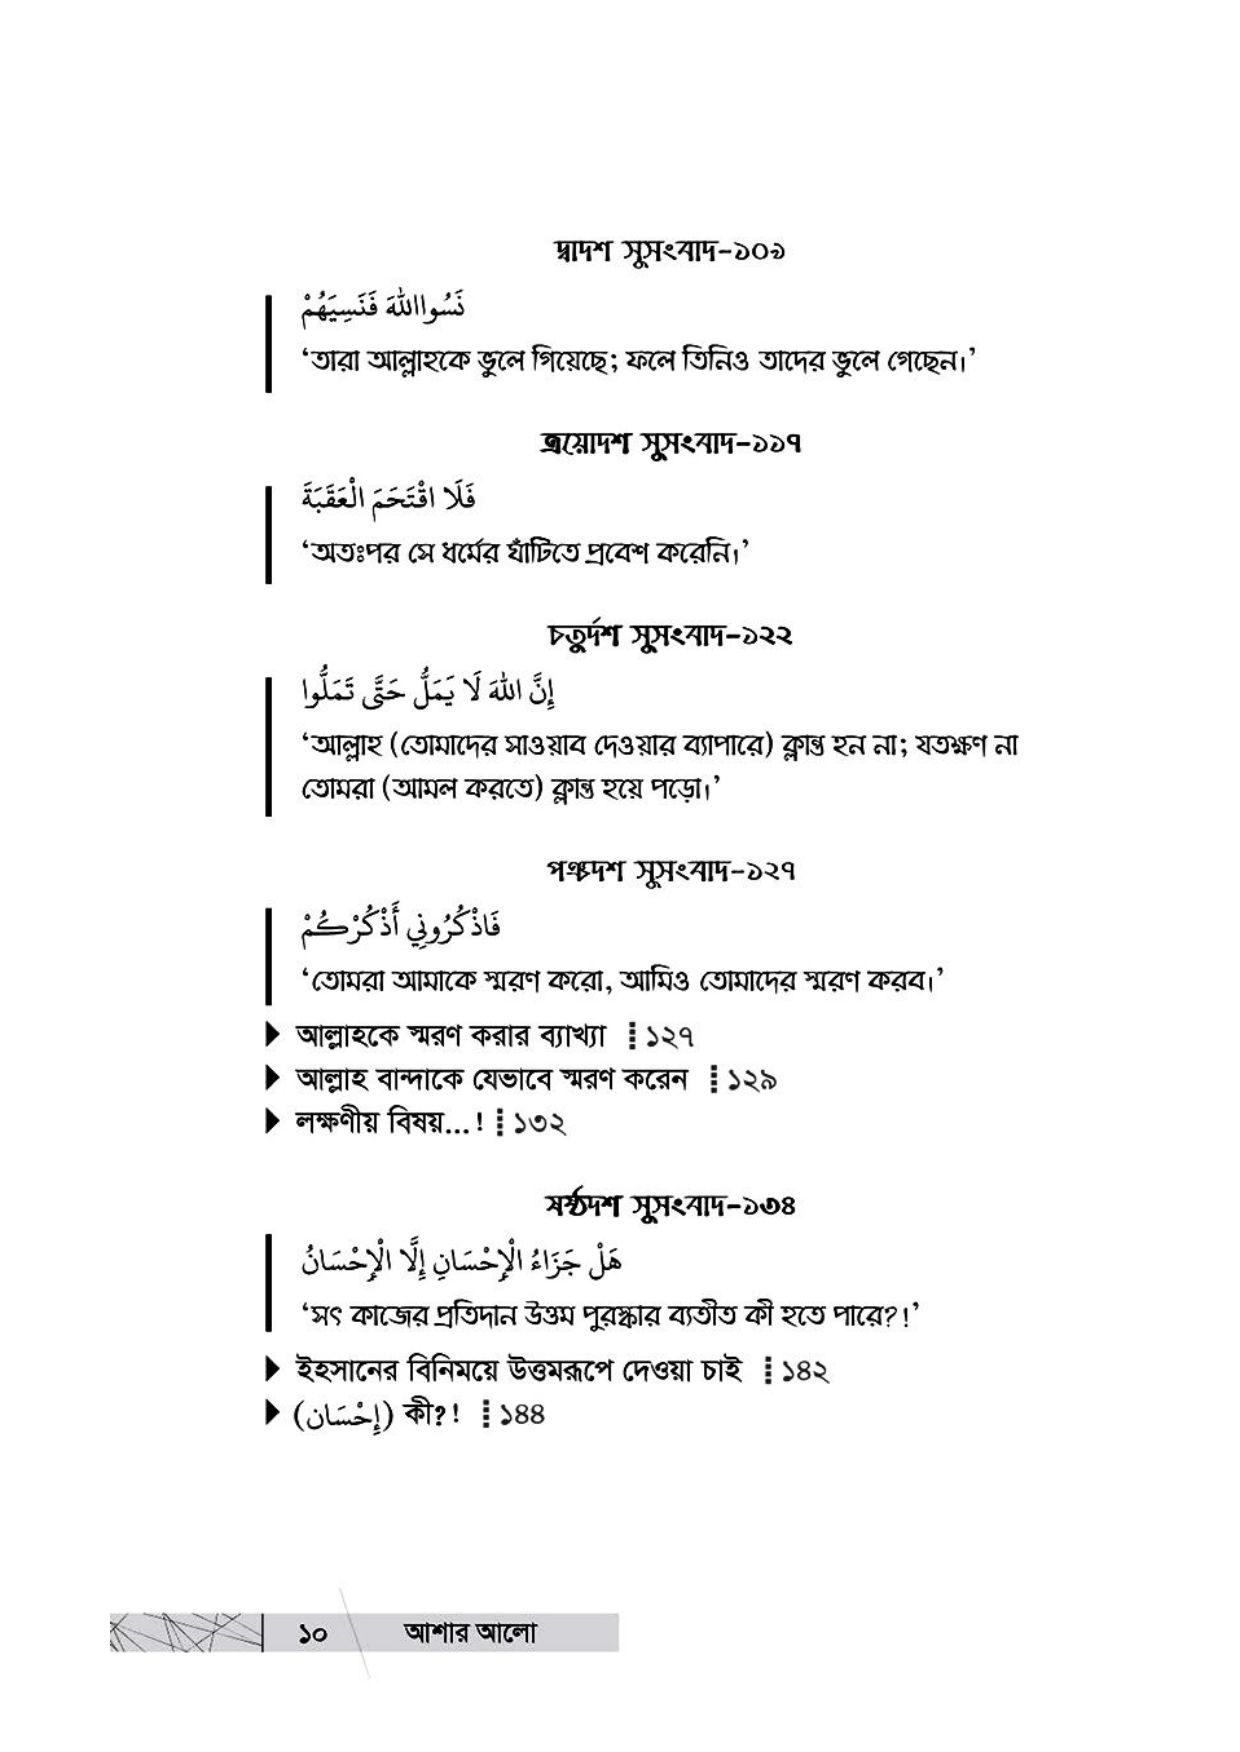 দ্বাদশ সুসংবাদ-১০৯
نَسُوااللهَ فَنَسِيَهُمْ
‘তারা আল্লাহকে ভুলে গিয়েছে; ফলে তিনিও তাদের ভুলে গেছেন।’
ত্রয়োদশ সুসংবাদ-১১৭
فَلَا اقْتَحَمَ الْعَقَبَةَ
‘অতঃপর সে ধর্মের ঘাঁটিতে প্রবেশ করেনি।’
চতুর্দশ সুসংবাদ-১২২
إِنَّ اللهَ لَا يَمَلُّ حَتَّى تَمَلُّوا
‘আল্লাহ (তোমাদের সাওয়াব দেওয়ার ব্যাপারে) ক্লান্ত হন না; যতক্ষণ না
তোমরা (আমল করতে) ক্লান্ত হয়ে পড়ো।’
পঞ্চদশ সুসংবাদ-১২৭
فَاذْكُرُونِي أَذْكُرْكُمْ
‘তোমরা আমাকে স্মরণ করো, আমিও তোমাদের স্মরণ করব।’
আল্লাহকে স্মরণ করার ব্যাখ্যা ১২৭
আল্লাহ বান্দাকে যেভাবে স্মরণ করেন ১২৯
লক্ষণীয় বিষয়...! ১৩২
ষষ্ঠদশ সুসংবাদ-১৩৪
هَلْ جَزَاءُ الْإِحْسَانِ إِلَّا الْإِحْسَانُ
‘সৎ কাজের প্রতিদান উত্তম পুরস্কার ব্যতীত কী হতে পারে?!’
ইহসানের বিনিময়ে উত্তমরূপে দেওয়া চাই ১৪২
(إِحْسَان) কী?! ১৪৪
১০ আশার আলো